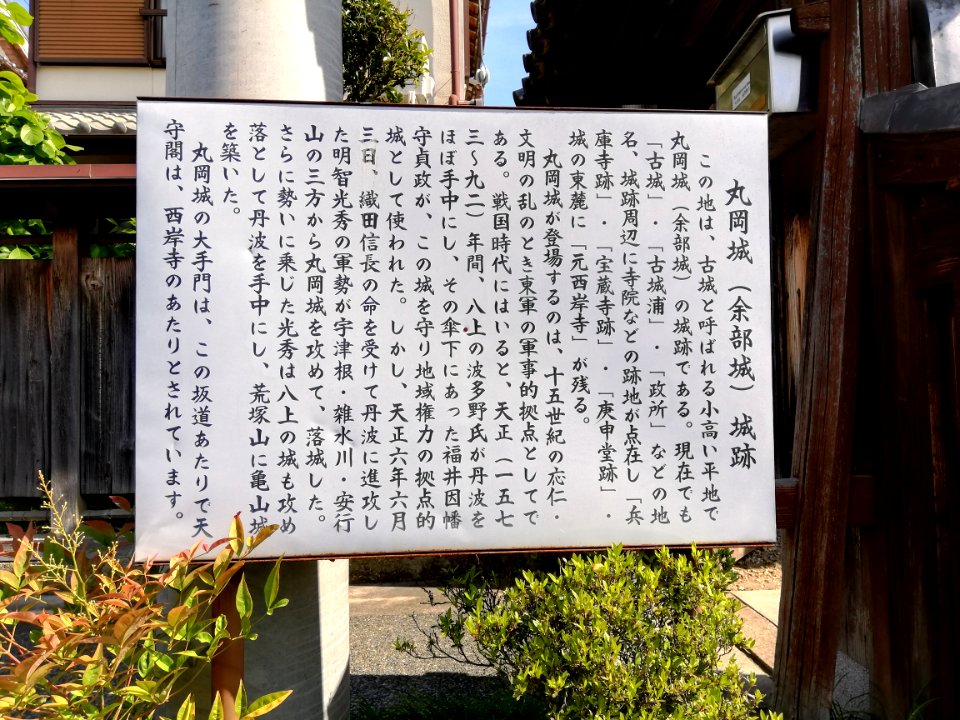 丸岡城（余部城）城跡
この地は、古城と呼ばれる小高い平地で
丸岡城（余部城）の城跡である。現在でも
「古城」・「古城浦」・「政所」などの地
名、城跡周辺に寺院などの跡地が点在し「兵
庫寺跡」・「宝蔵寺跡」・「庚申堂跡」・
城の東麓に「元西岸寺」が残る。
丸岡城が登場するのは、十五世紀の応仁・
文明の乱のとき東軍の軍事的拠点としてで
ある。戦国時代にはいると、天正（一五七
三〜九二）年間、八上の波多野氏が丹波を
ほぼ手中にし、その傘下にあった福井因幡
守貞政が、この城を守り地域権力の拠点的
城として使われた。しかし、天正六年六月
三日、織田信長の命を受けて丹波に進攻し
た明智光秀の軍勢が宇津根・雑水川・安行
山の三方から丸岡城を攻めて、落城した。
さらに勢いに乗じた光秀は八上の城も攻め
落として丹波を手中にし、荒塚山に亀山城
を築いた。
丸岡城の大手門は、この坂道あたりで天
守閣は、西岸寺のあたりとされています。